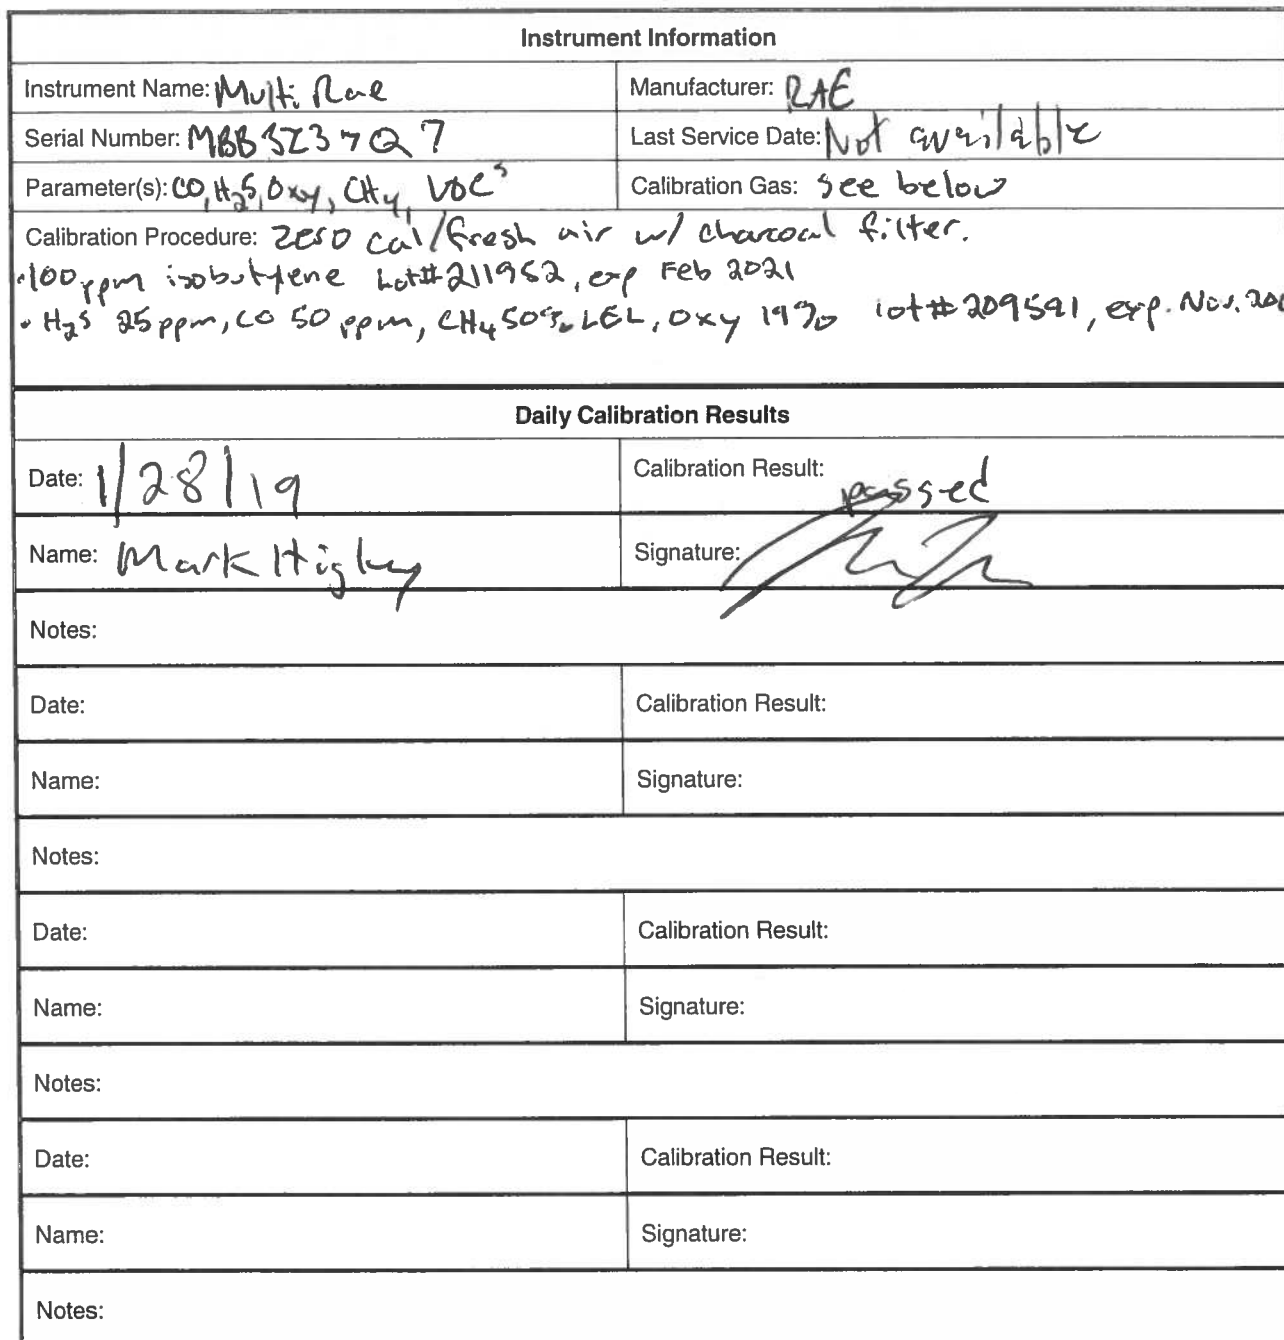 Instrument Information
Instrument Name: Multi Rae
Manufacturer: RAE
Serial Number: MBB3Z37Q7
Last Service Date: Not available
Parameter(s): CO, H2S, Oxy, CH4, VOCs
Calibration Gas: see below
Calibration Procedure: zero cal/fresh air w/ charcoal filter.
•100 ppm isobutylene Lot# 211952, exp Feb 2021
• H2S 25ppm, CO 50 ppm, CH4 50% LEL, Oxy 19% lot# 209541, exp. Nov. 20
Daily Calibration Results
Date: 1/28/19
Calibration Result: passed
Name: Mark Higley
Signature:
Notes:
Date:
Calibration Result:
Name:
Signature:
Notes:
Date:
Calibration Result:
Name:
Signature:
Notes:
Date:
Calibration Result:
Name:
Signature:
Notes: